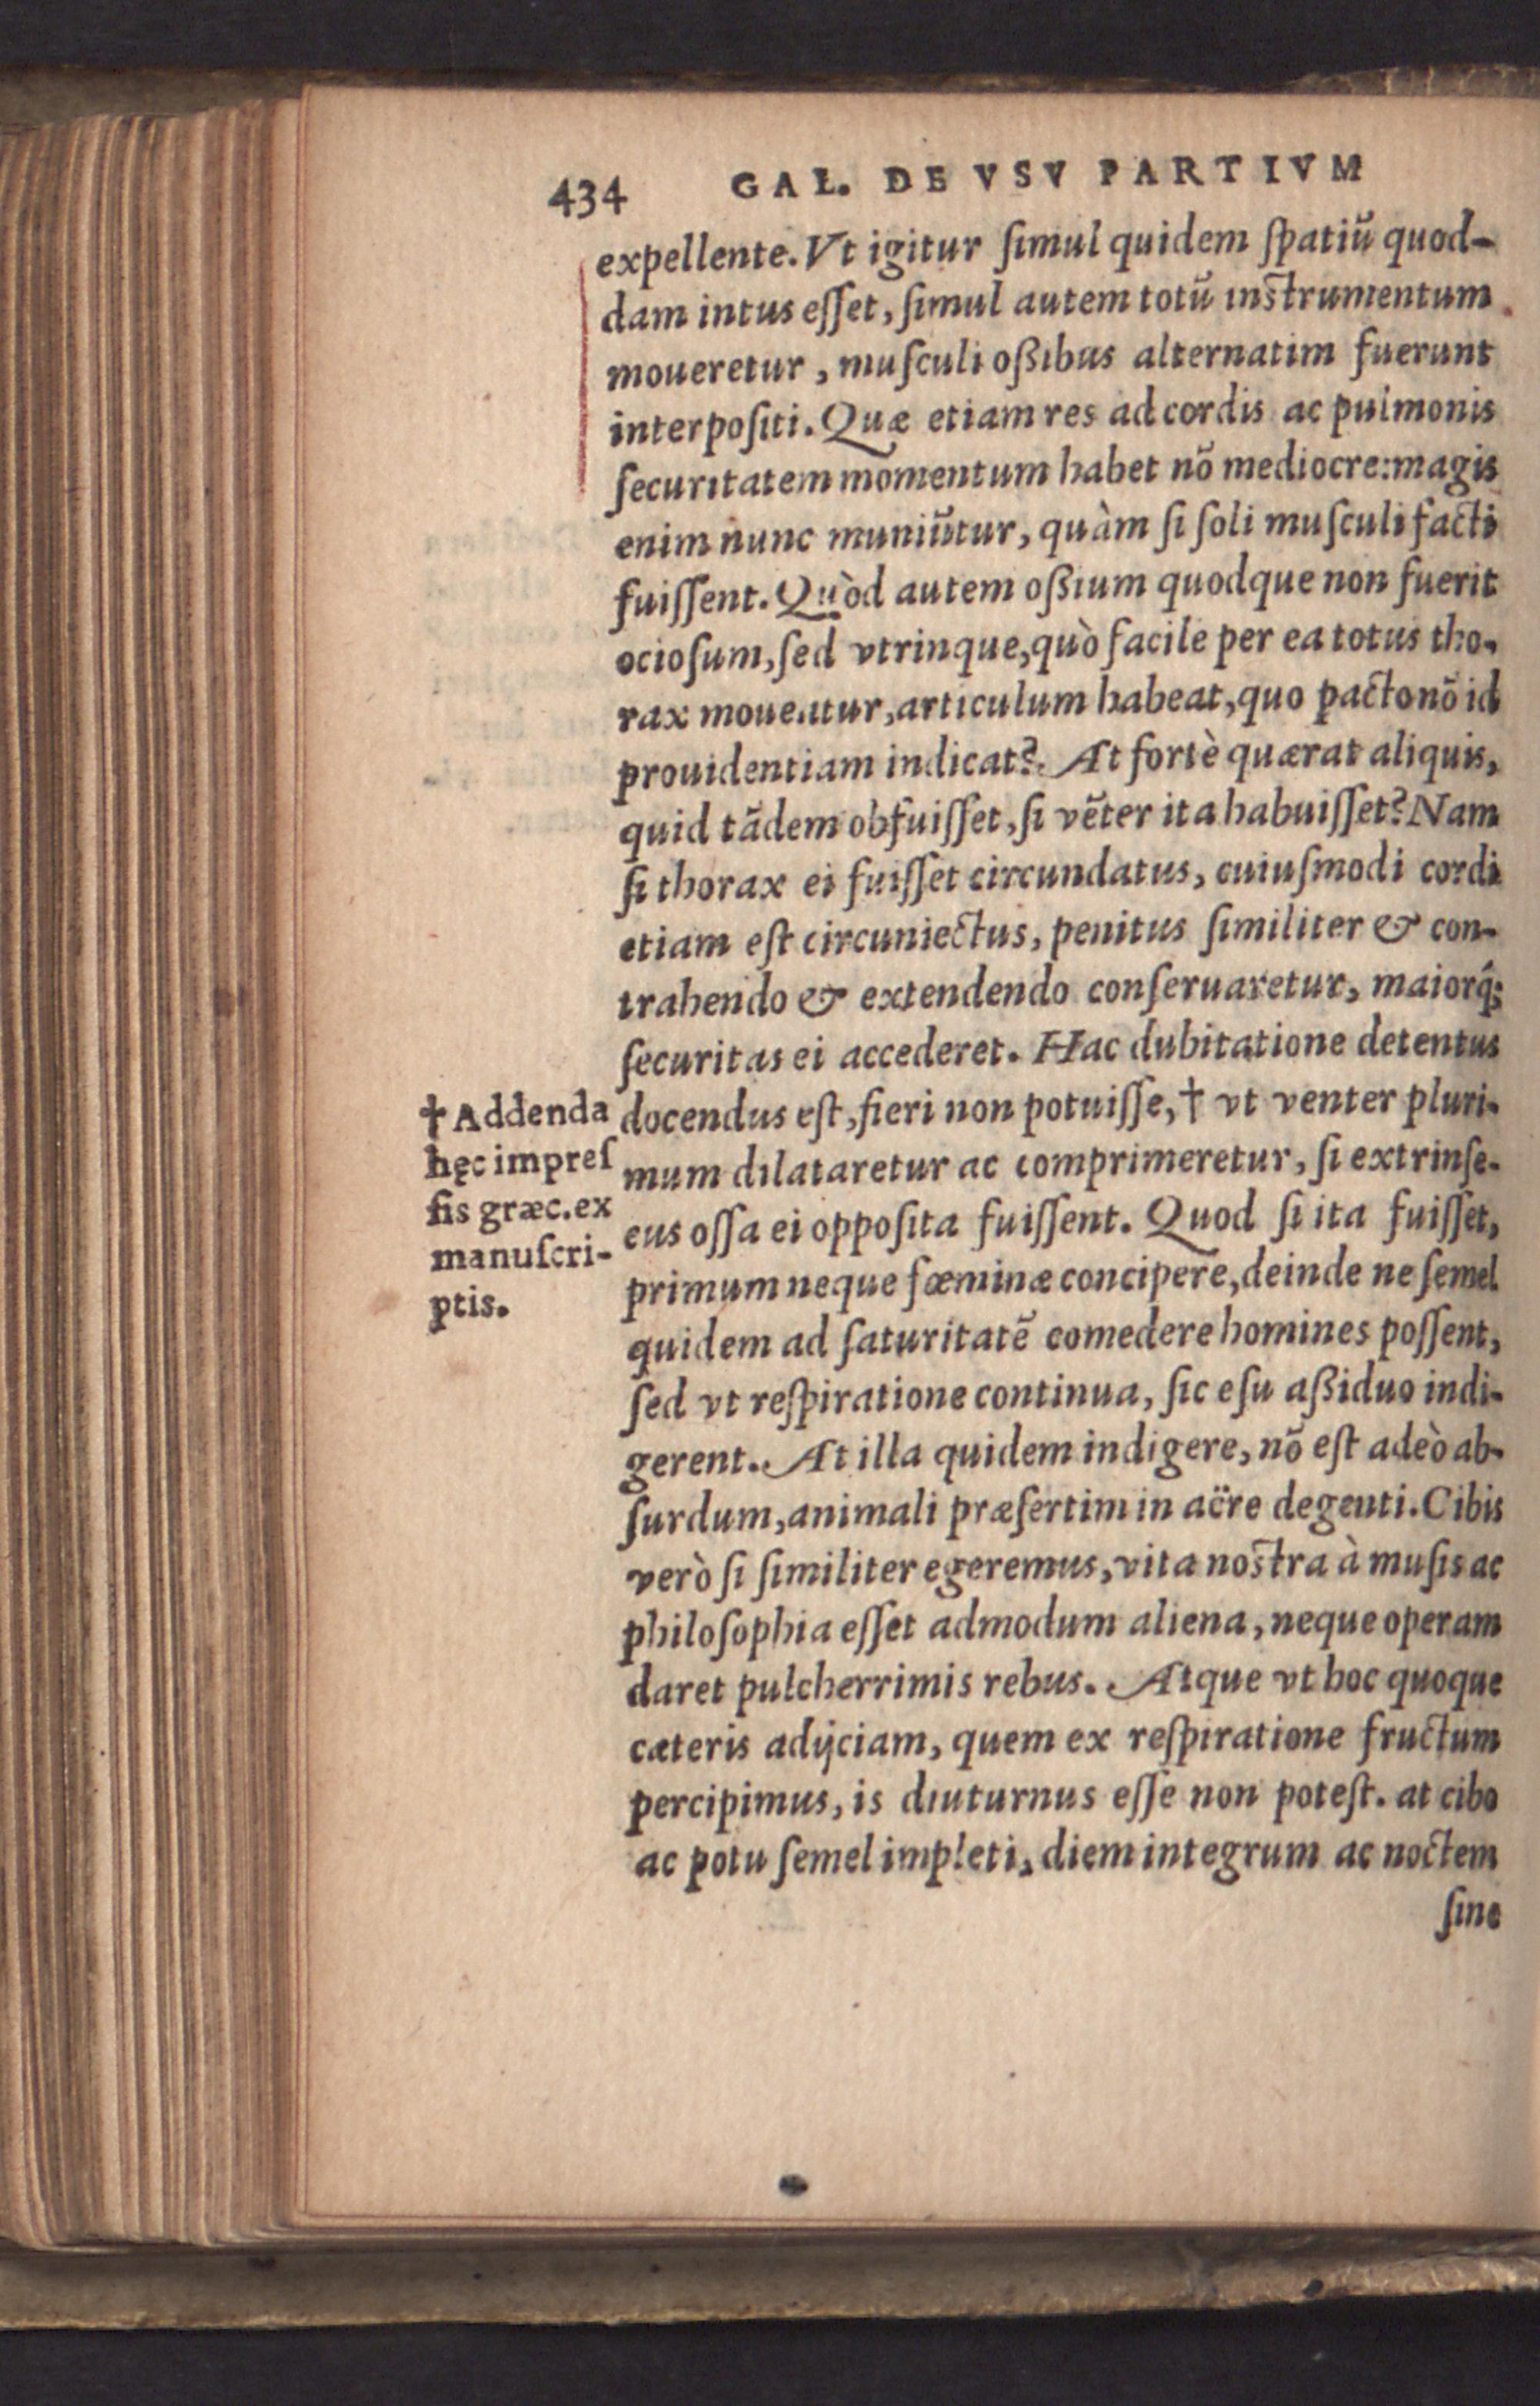 434 GAL. DE VSV PARTIVM
expellente. Vt igitur ſimul quidem ſpatiũ quod-
dam intus eſſet, ſimul autem totũ inſtrumentum
moueretur, muſculi oßibus alternatim fuerunt
interpoſiti. Quæ etiam res ad cordis ac pulmonis
ſecuritatem momentum habet nõ mediocre: magis
enim nunc muniũtur, quàm ſi ſoli muſculi facti
fuiſſent. Quòd autem oßium quodque non fuerit
ocioſum, ſed vtrinque, quò facile per ea totus tho-
rax moueatur, articulum habeat, quo pacto nõ id
prouidentiam indicat? At fortè quærat aliquis,
quid tãdem obfuiſſet, ſi vẽter ita habuiſſet? Nam
ſi thorax ei fuiſſet circundatus, cuiuſmodi cordi
etiam eſt circuniectus, penitus ſimiliter & con-
trahendo & extendendo conſeruaretur, maiorq́;
ſecuritas ei accederet. Hac dubitatione detentus
docendus eſt, fieri non potuiſſe, † vt venter pluri-
mum dilataretur ac comprimeretur, ſi extrinſe-
cus oſſa ei oppoſita fuiſſent. Quod ſi ita fuiſſet,
primum neque fœminæ concipere, deinde ne ſemel
quidem ad ſaturitatẽ comedere homines poſſent,
ſed vt reſpiratione continua, ſic eſu aßiduo indi-
gerent. At illa quidem indigere, nõ eſt adeò ab-
ſurdum, animali præſertim in aëre degenti. Cibis
verò ſi ſimiliter egeremus, vita noſtra à muſis ac
philoſophia eſſet admodum aliena, neque operam
daret pulcherrimis rebus. Atque vt hoc quoque
cæteris adijciam, quem ex reſpiratione fructum
percipimus, is diuturnus eſſe non poteſt. at cibo
ac potu ſemel impleti, diem integrum ac noctem
ſine
† Addenda
hęc impreſ
ſis græc. ex
manuſcri-
ptis.